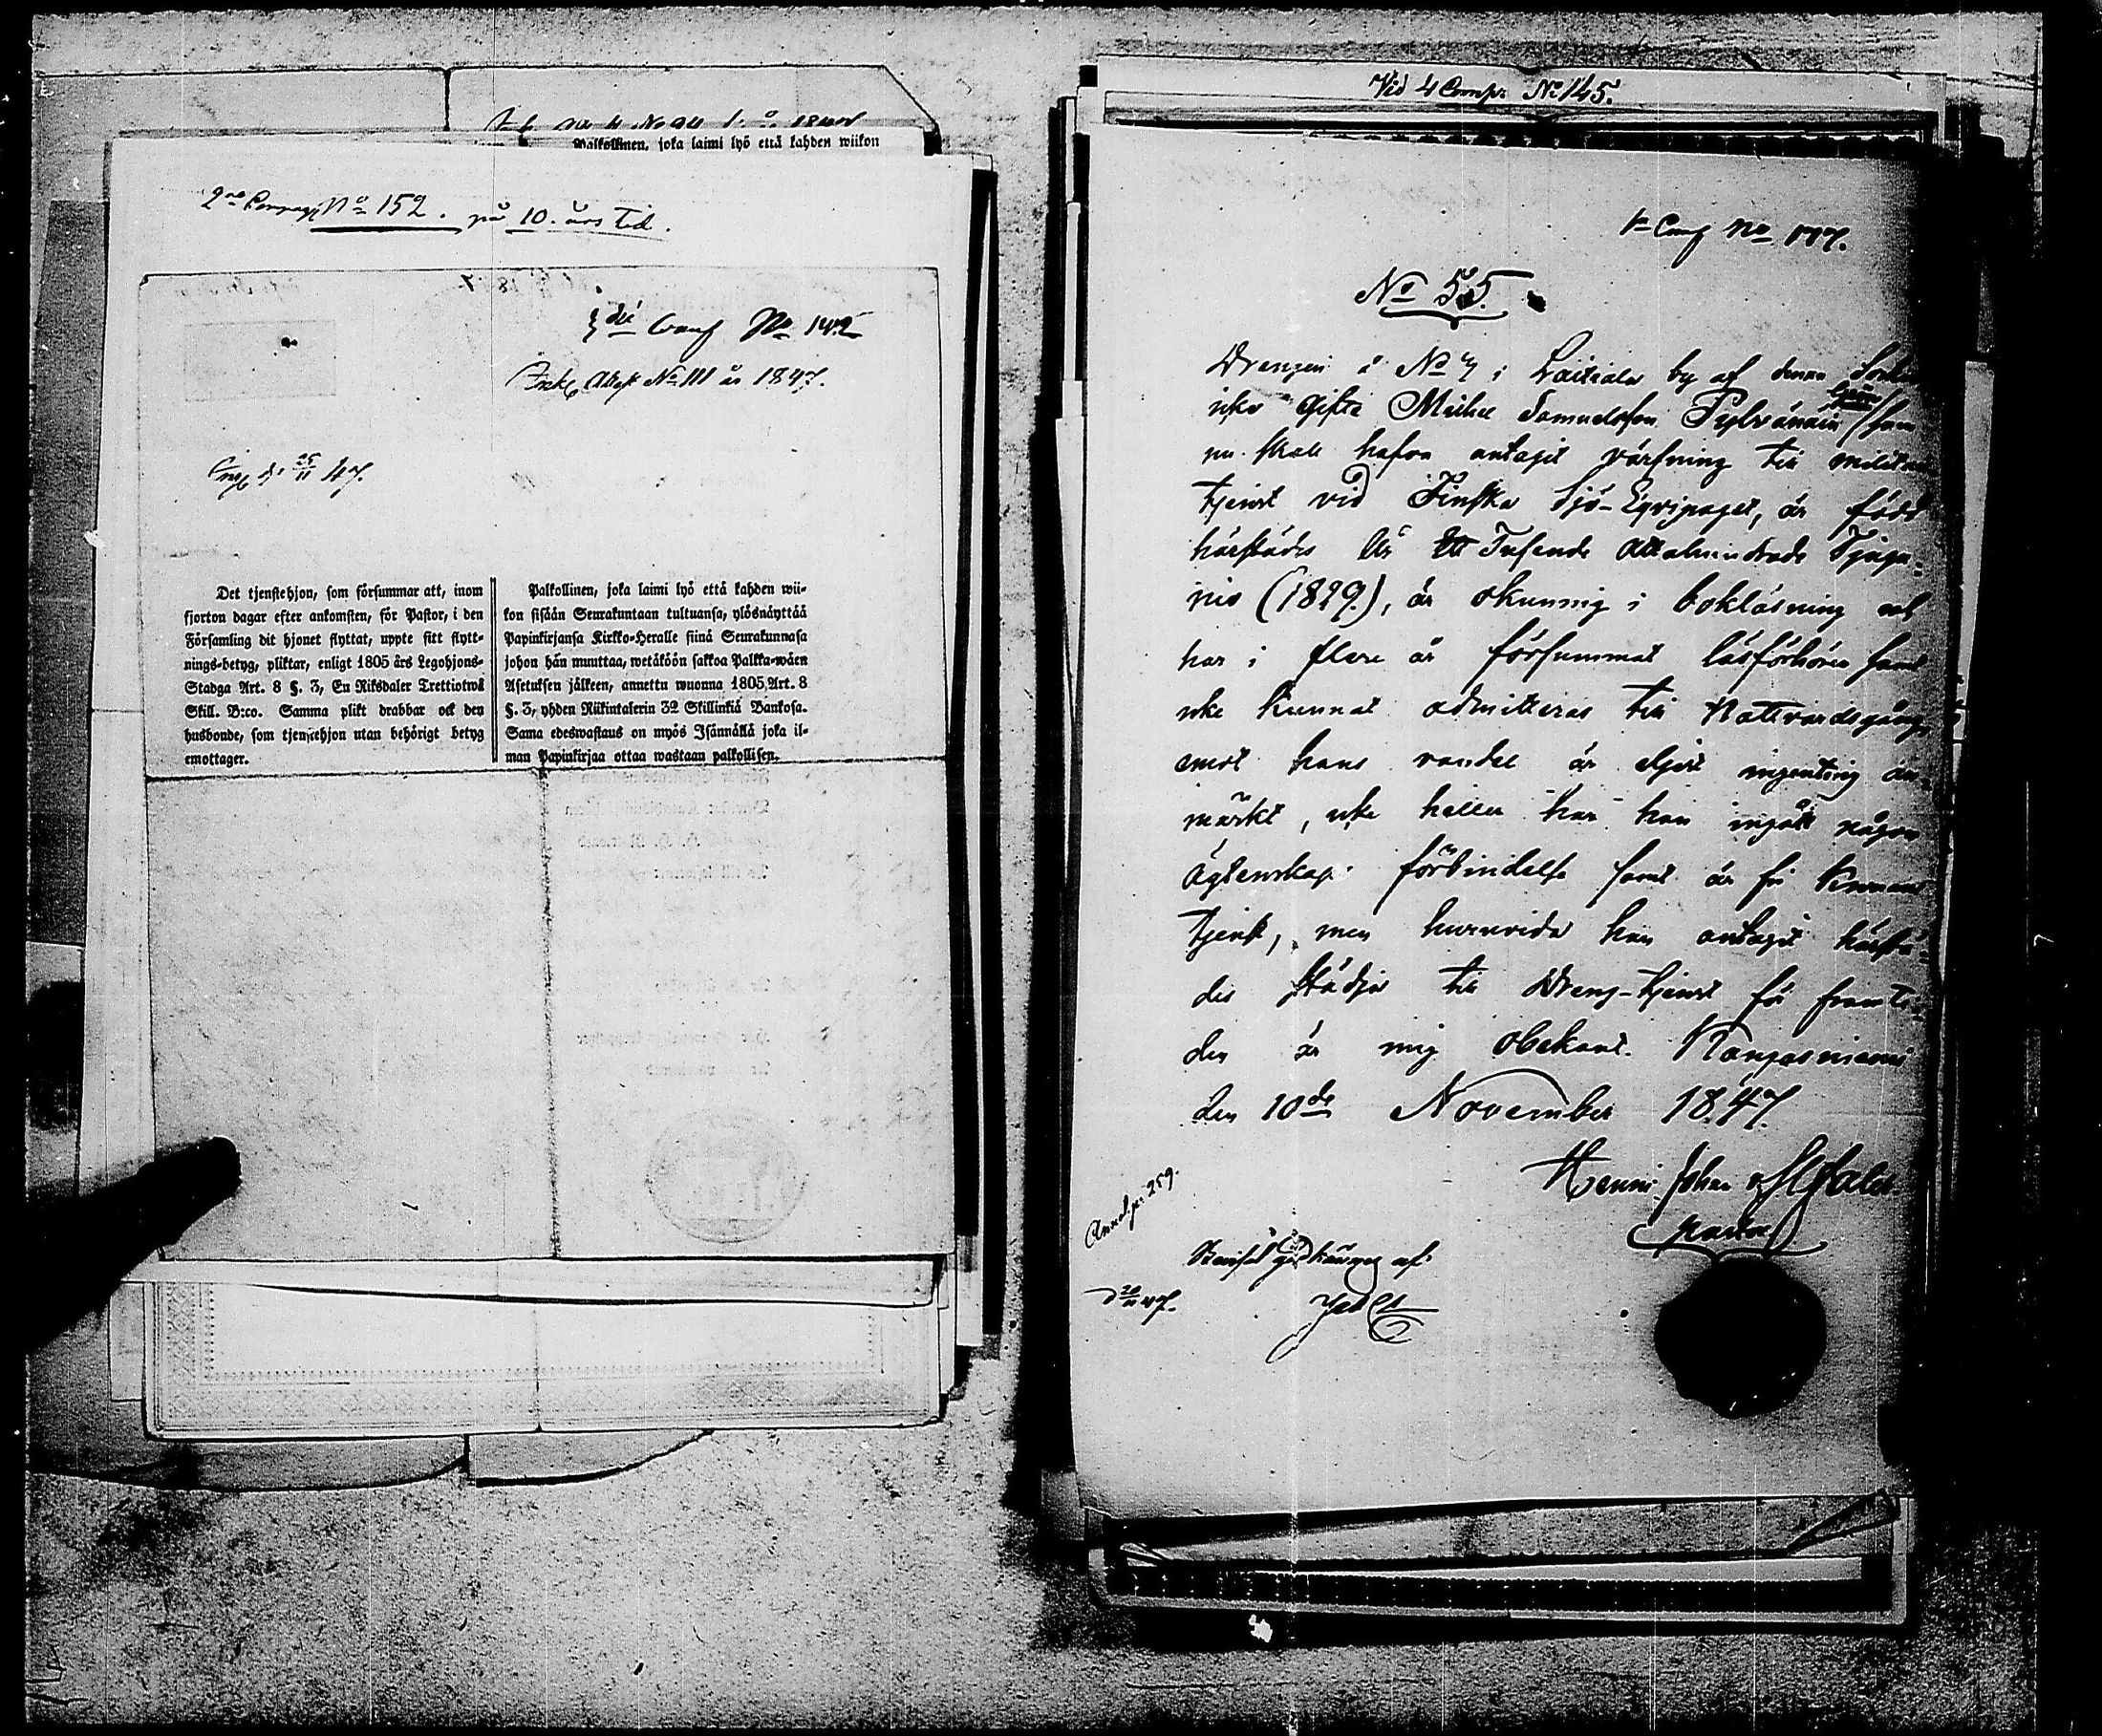 Palkollinen, joka laimi lyö että kahden wiikon
2ra Compagi No 152. på 10. års tid.
Comp No 142
Attest No 111 år 1847.
d. 25/11 47.
Det tjenstehjon, som försummar att, inom
fjorton dagar efter ankomsten, för Pastor, i den
Församling dit hjonet flyttat, uppte sitt flytt-
nings-betyg, pliktar, enligt 1805 års Legohjons-
Stadga Art. 8 §. 3, En Riksdaler Trettiotwå
Skill. B:co. Samma plikt drabbar ock den
husbonde, som tjenstehjon utan behörigt betyg
emottager.
Palkollinen, joka laimi lyö että kahden wii-
kon sisään Seurakuntaan tultuansa, ylösnäyttää
Papinkirjansa Kirkko-Heralle siinä Seurakunnasa
johon hän muuttaa, wetäköön sakkoa Palkka-wäen
Asetuksen jälkeen, annettu wuonna 1805, Art. 8
§. 3, yhden Riikintalerin 32 Skillinkiä Bankosa.
Sama edeswastaus on myös Isännällä joka il-
man Papinkirjaa ottaa wastaan palkollisen.
Vid 4 Comp: No 145.
1a Comp No 177.
No 55.
Drengen å No 7 i Laitiala by af denna
icke gifta Michel Samuelsson Pylvänäin som
nu skall hafva antagit värfning till militair
tjenst vid Finska Sjö-Eqvipaget, är född
härstädes År Ett Tusende Attahundrade Tjugu
nio (1829.), är okunnig i bokläsning och
har i flere år försummat läsförhören samt
icke kunnat admitteras till Nattvardsgång,
emot hans vandel är eljest ingenting an-
märkt, icke heller har han ingått någon
ägtenskaps förbindelse samt är fri
tjenst, men huruvida han antagit härstä-
des städja till Dreng-tjenst för framti-
den är mig obekant. Kangasniemi
den 10de November 1847.
Henric Johan
Pastor
Annot. p. 259.
af